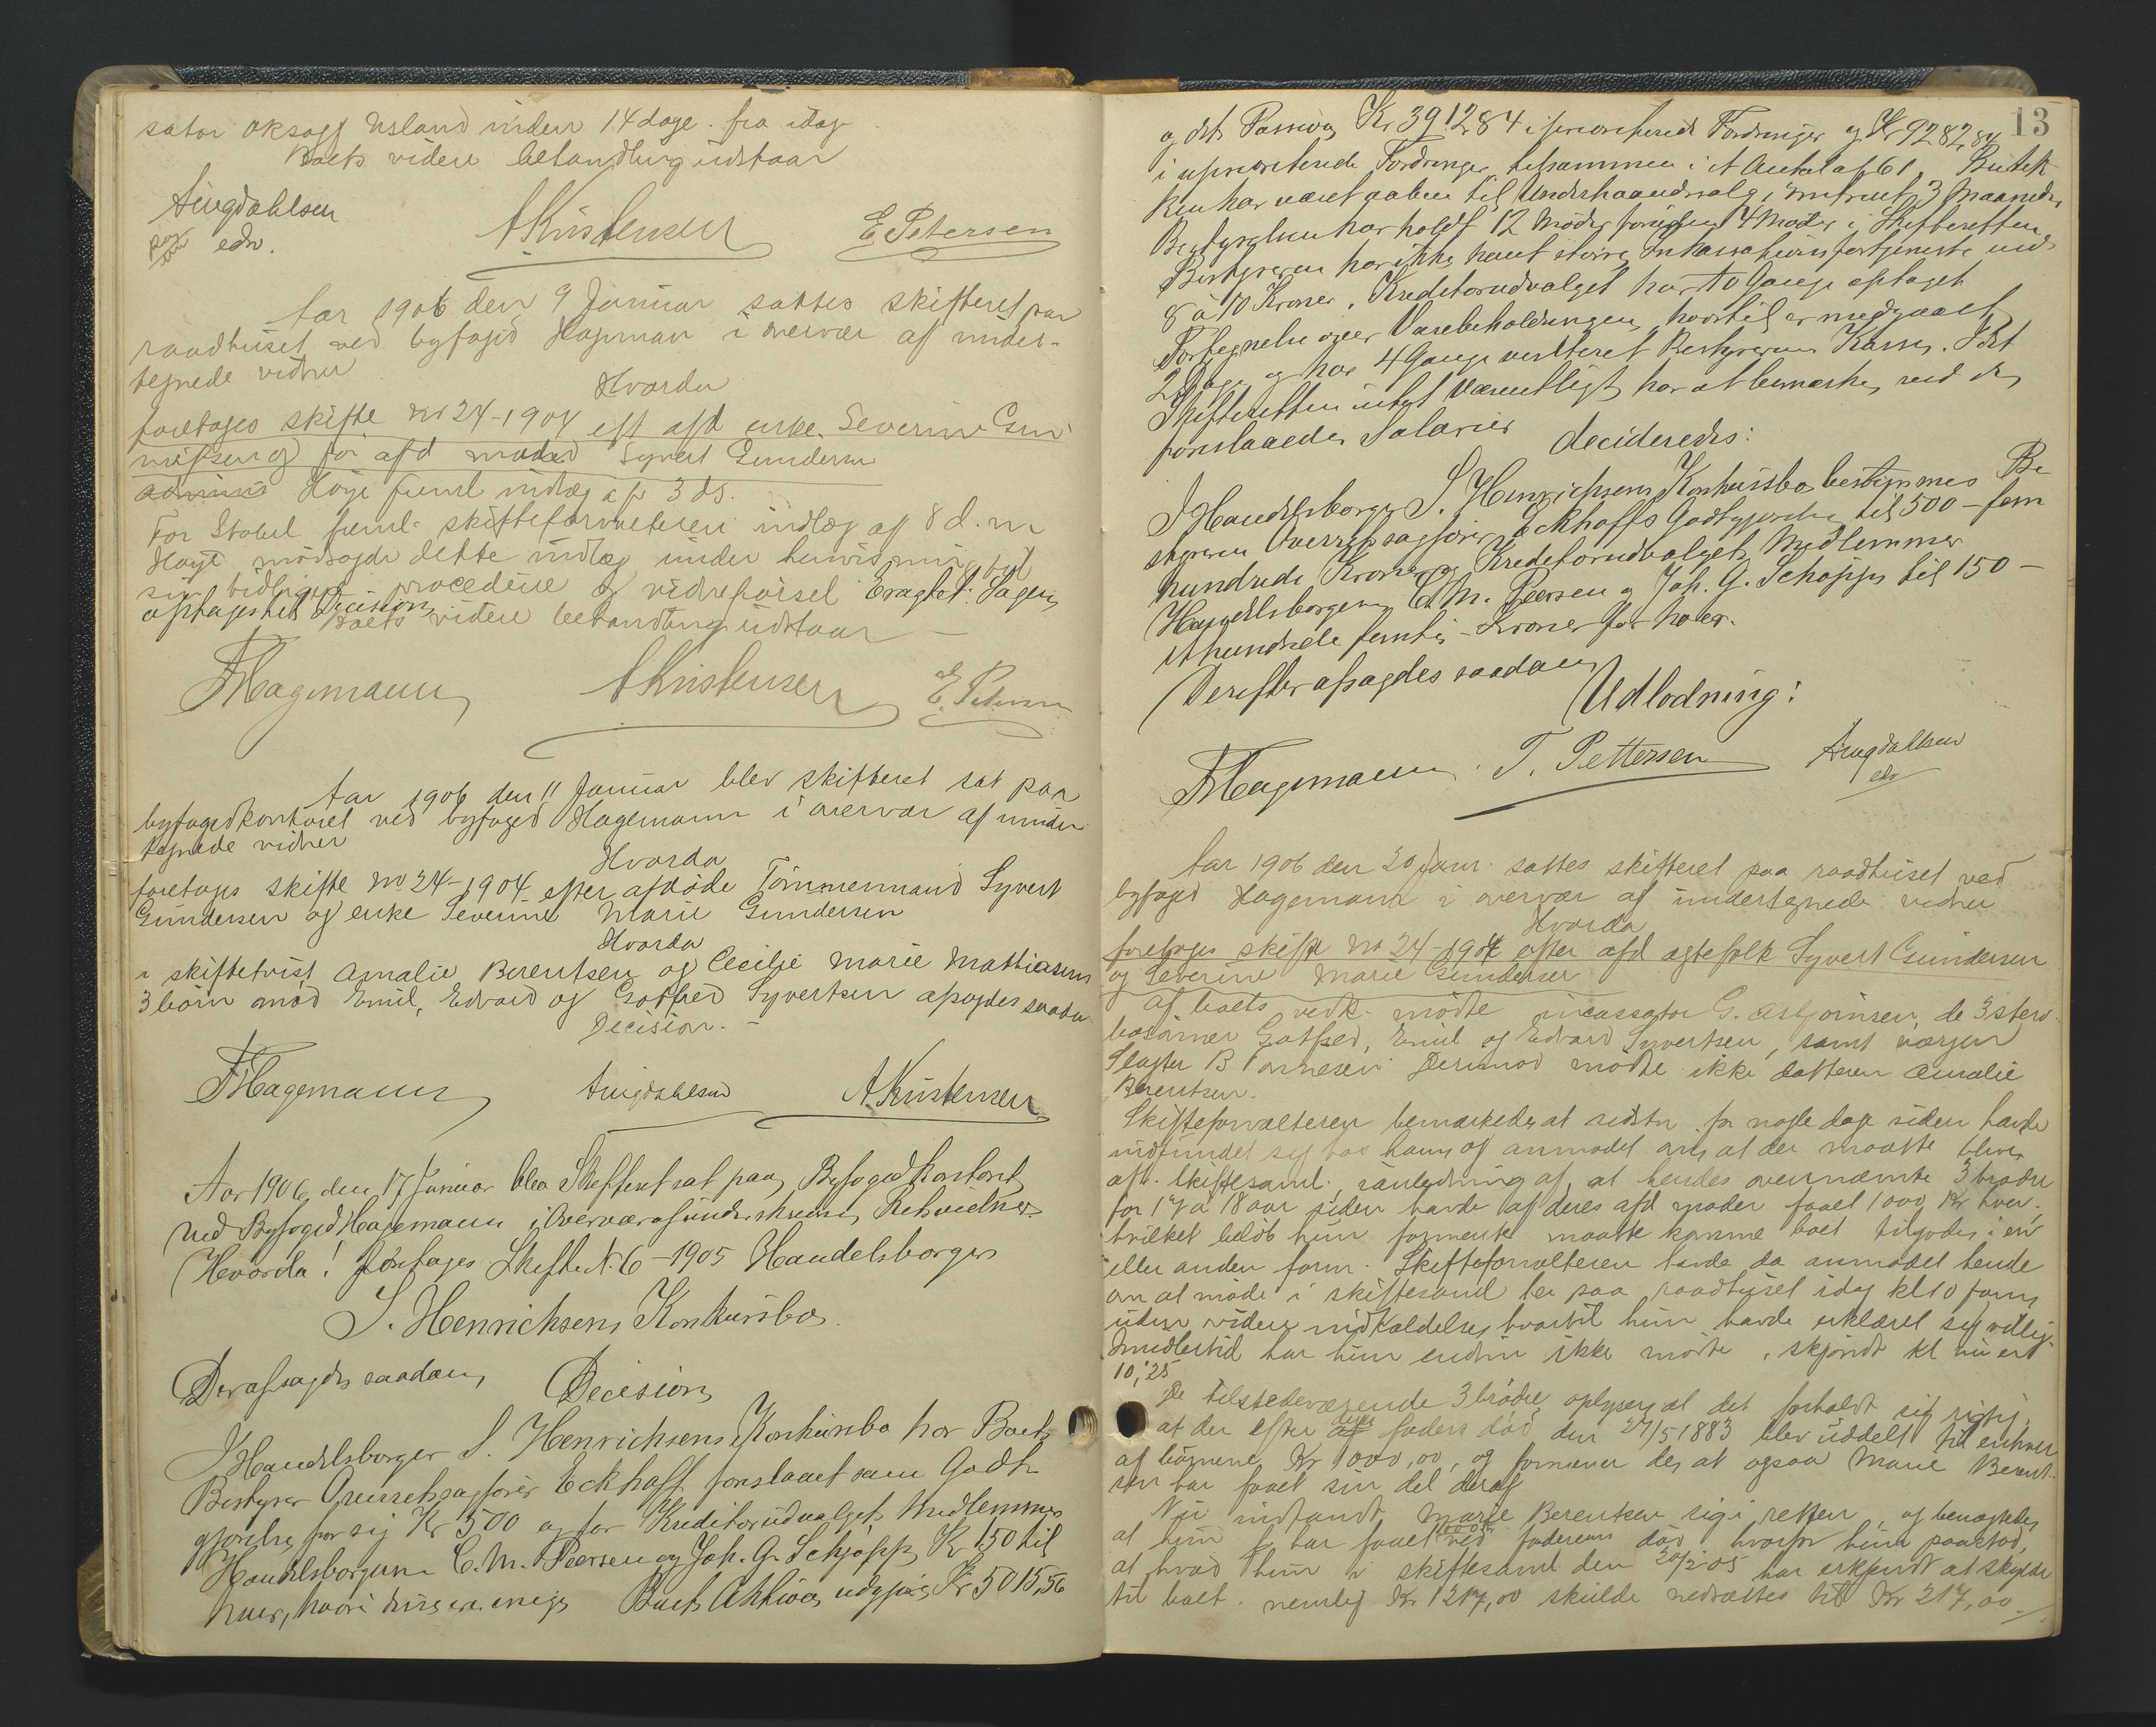 sator Aksagg Usland inden 14 dage fra idag
Boets videre behandling udstaar
Aingdahlsen
edv.
AKristensen
E Petersen
Aar 1906 den 9 Januar sattes skifteret paa
raadhuset ved byfoged Hagemann i overvær af under-
tegnede vidner
Hvorda
foretages skifte no 24-1904 eft afd enke Severine Gun
og for afd mand Syvert Gundersen
Høye freml indlæg af 3 ds.
For Stabel freml. skifteforvalteren indlæg af 8 d. m
Høye modsagde dette indlæg under henvisning til
sin tidligere procedure og vidneførsel Eragtet: Sagen
optages til Decision
Boets videre behandling udstaar
FHagemann
AKristensen
E. Petersen
Aar 1906 den 11 Januar blev skifteret sat paa
byfogedkontoret ved byfoged Hagemann i overvær af under
tegnede vidner
Hvorda
foretages skifte no 24-1904 efter afdøde Tømmermand Syvert
Gundersen og enke Severine Marie Gundersen
Hvorda
i skiftetvist Amalie Berentsen og Cecilie Marie Mathiasens
3 børn mod Emil, Edvard og Gotfred Syvertsen afsagdes saadan
Decision. -
FHagemann
Aingdahlsen
A. Kristensen
Aar 1906, den 17 Januar blev Skifteret sat paa Byfogedkontoret
ved Byfoged Hagemann i Overvær af underskrevne Retsvidner.
Hvorda! foretages Skifte N. 6-1905 Handelsborger
S. Henrichsens Konkursbo.
Der afsagdes saadan
Decision
I Handelsborger S. Henrichsens Konkursbo har Boets
Bestyrer Overretssagfører Eckhoff foreslaaet som Godt-
gjørelse for sig Kr 500 og for Kreditorudvalgets Medlemmer
Handelsborgerne C. M. Peersen og Joh. G. Schjøpp Kr 150 til
hver, hvori disse er enige Boets Aktiva udgjør Kr 5015,56
13
og dets Passiva Kr 3912,84 i prioriterede Fordringer og Kr 9282,84
i uprioriterede Fordringer tilsammen i et Antal af 61. Butik-
ken har været aaben til Underhaandssalg i omtrent 3 Maaneder
Bestyrelsen har holdt 12 Møder foruden 4 Møder i Skifteretten.
Bestyreren har ikke havt større Inkassationsfortjeneste end
8 à 10 Kroner. Kreditorudvalget har to Gange optaget
Fortegnelse over Varebeholdningen, hvortil er medgaaet
2 Dage og har 4 Gange revideret Bestyrerens Kasse. Idet
Skifteretten intet Væsentligt har at bemærke ved de
foreslaaede Salarier
decideredes:
I Handelsborger S. Henrichsens Konkursbo bestemmes Be-
styreren Overretssagfører Eckhoffs Godtgjørelse til 500 - fem
hundrede Kroner og Kreditorudvalgets Medlemmer
Handelsborgerne C. M. Peersen og Joh. G. Schøpps til 150 -
et hundrede femti - Kroner for hver.
Derefter afsagdes saadan
Udlodning:
FHagemann.
T. Pettersen
Aingdahlsen
edv
Aar 1906 den 20 Janr. sattes skifteret paa raadhuset ved
byfoged Hagemann i overvær af undertegnede vidner
Hvorda
foretages skifte no 24-1904 efter afd ægtefolk Syvert Gundersen
og Severine Marie Gundersen
Af boets vedk. mødte incassator G. Asbjørnsen, de 3 sterv-
bosønner Gotfred, Emil og Edvard Syvertsen, samt værgen
Slagter B Tønnesen. Derimod mødte ikke datteren Amalie
Berentsen.
Skifteforvalteren bemærkede, at sidstn. for nogle dage siden havde
indfundet sig hos ham og anmodet om, at der maatte blive
afh. skiftesaml. i anledning af, at hendes ovennævnte 3 brødre
for 17 a 18 aar siden havde af deres afd moder faaet 1000 Kr hver,
hvilket beløb hun formente maatte komme boet tilgode, i en
eller anden form. Skifteforvalteren havde da anmodet hende
om at møde i skiftesaml her paa raadhuset idag kl 10 form
uden videre indkaldelse, hvortil hun havde erklæret sig villig.
Imidlertid har hun endnu ikke mødt, skjøndt kl nu er
10,25
De tilstedeværende 3 brødre oplyser, at det forholdt sig rigtig,
at der efter deres faders død den 27/5 1883 blev uddelt til enhver
af børnene Kr 1000,00, og formener de, at ogsaa Marie Berent-
sen har faaet sin del deraf
Nu indfandt Marie Berentsen sig i retten, og benægtede,
at hun har faaet noget ved faderens død, hvorfor hun paastod,
at hvad hun i skiftesaml den 20/2 05 har erkjendt at skylde
til boet. nemlig Kr 1217,00 skulde nedsættes til Kr 217,00.